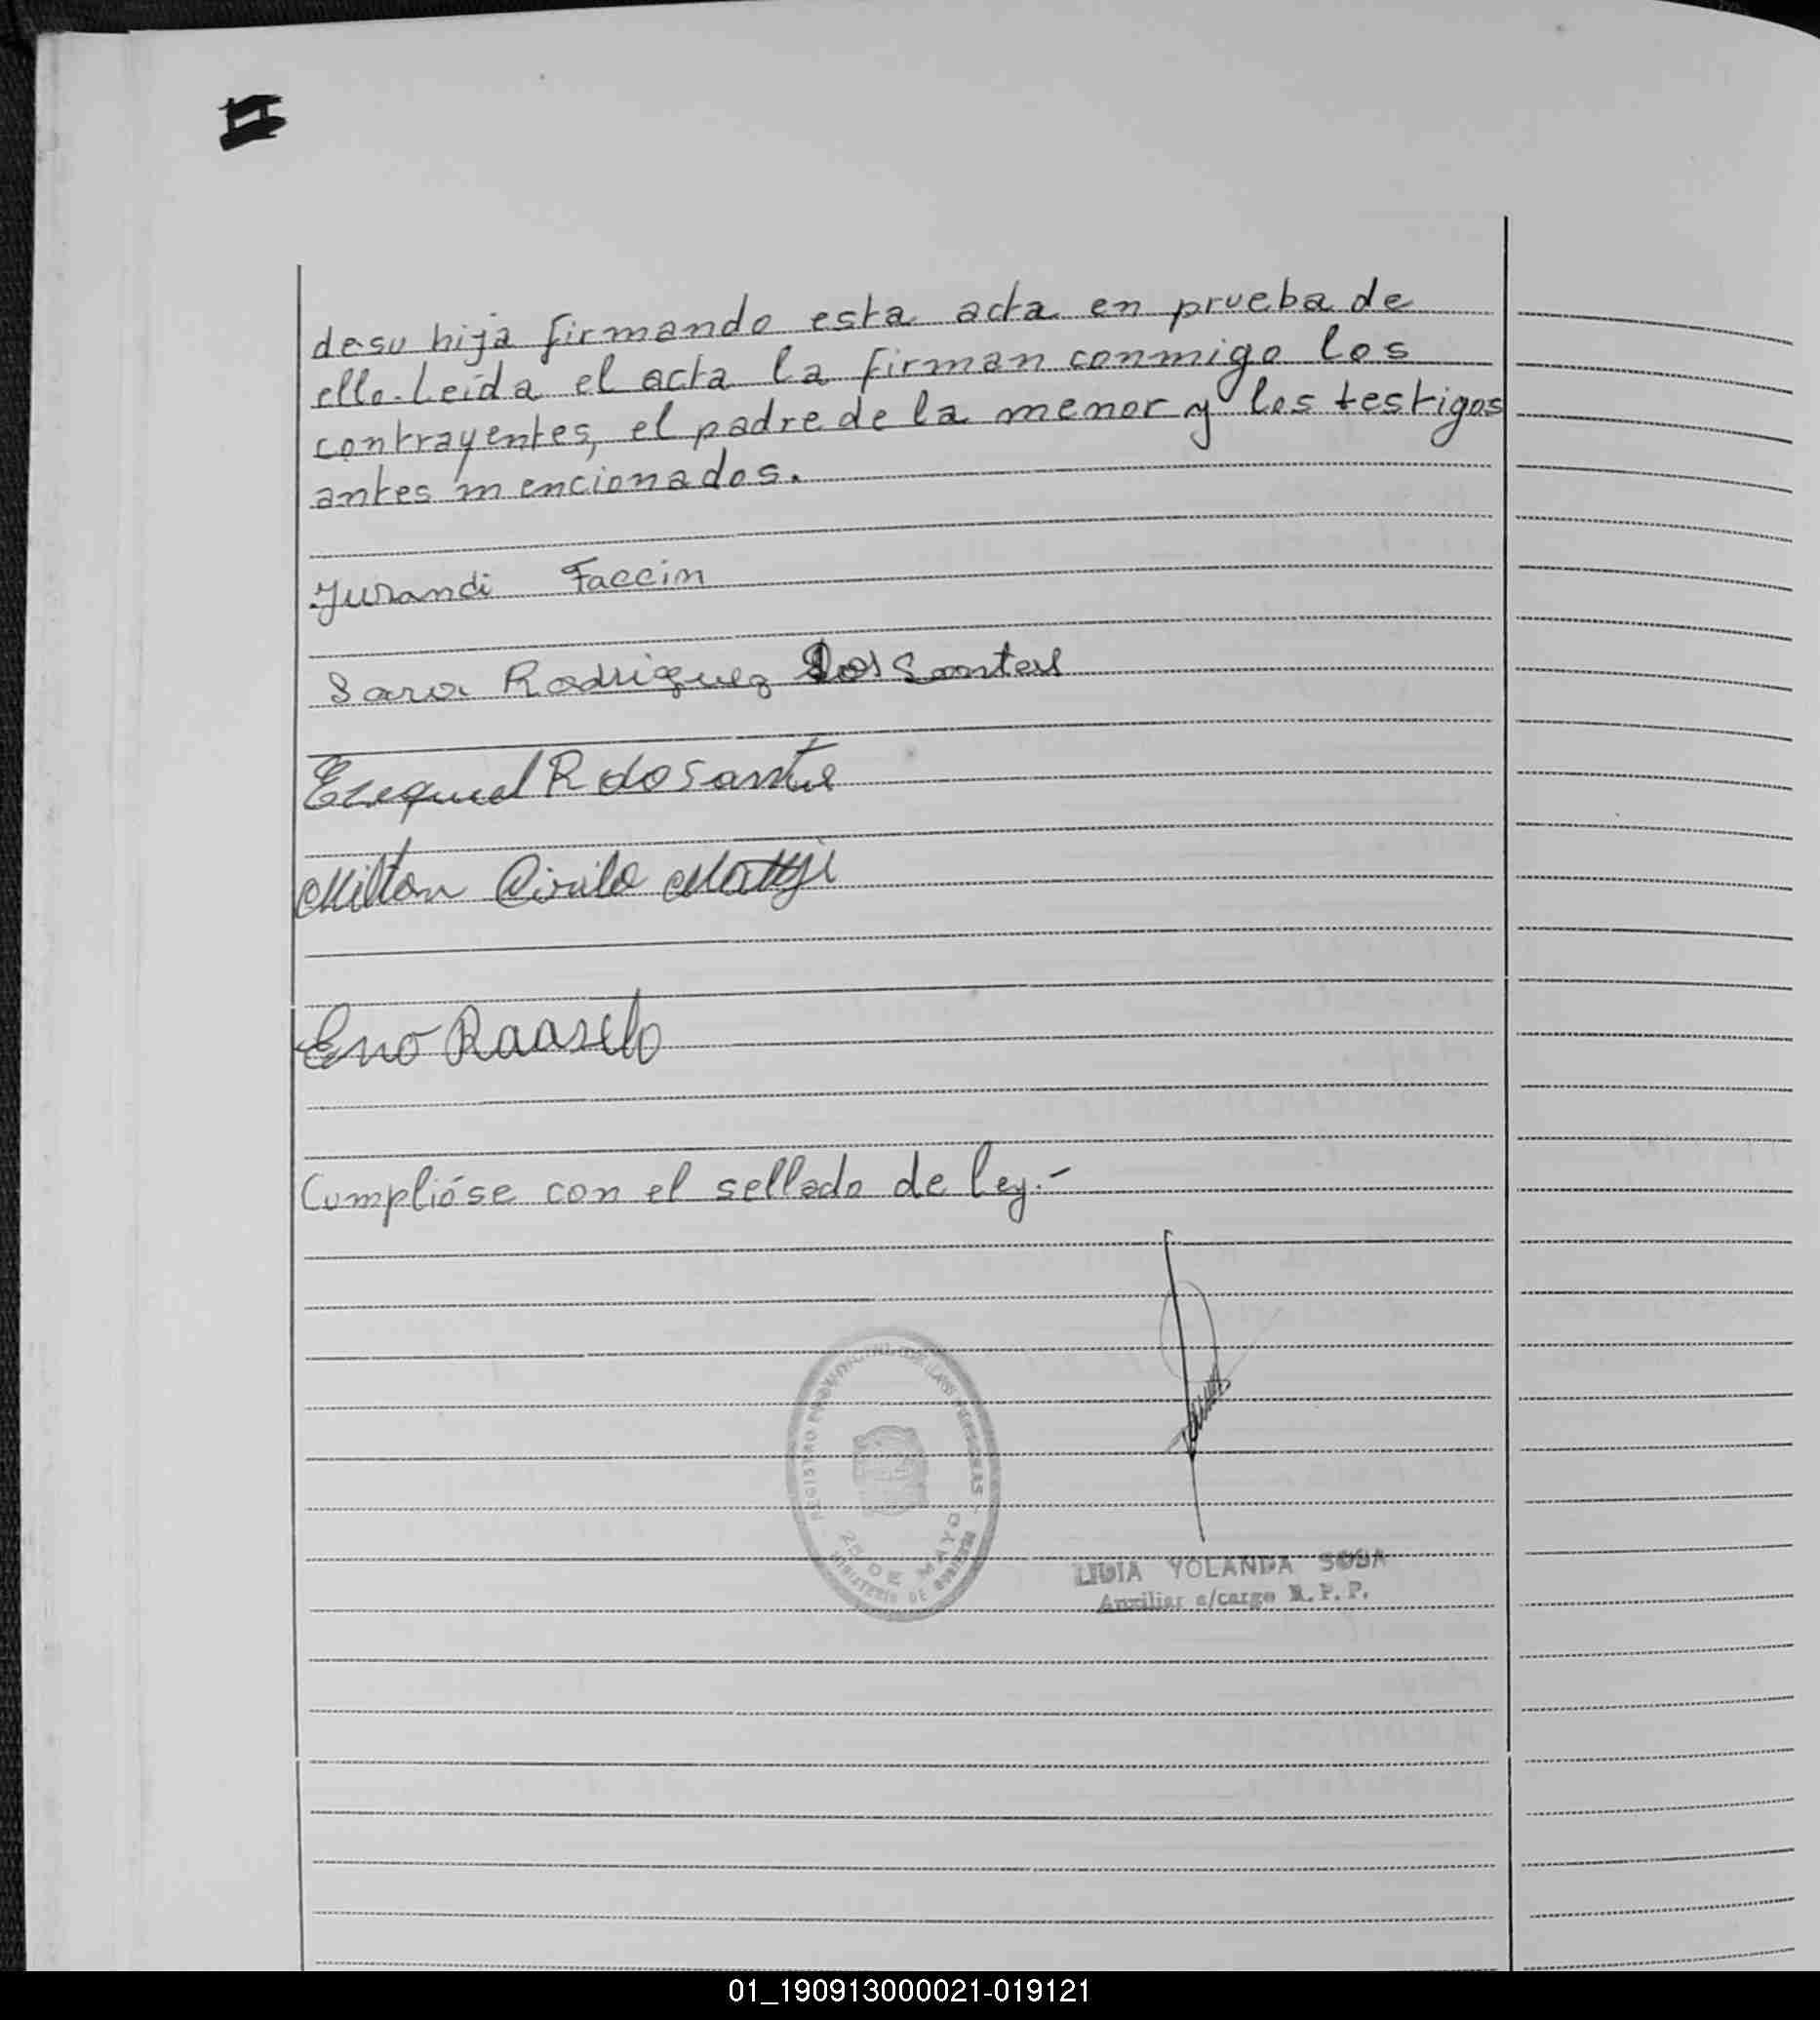 de su hija firmando esta acta en prueba de
ello. Leída el acta la firman conmigo los
contrayentes, el padre de la menor y los testigos
antes mencionados.
Jurandi Faccin
Sara Rodriguez Dos Santos
Ezequiel R do Santos
Milton Cirilo
Eno
Cumplióse con el sellado de ley.-
REGISTRO PROVINCIAL DE LAS PERSONAS
25 DE MAYO
MINISTERIO DE GOBIERNO
LIDIA YOLANDA SOSA
Auxiliar a/cargo R. P. P.
01_190913000021-019121